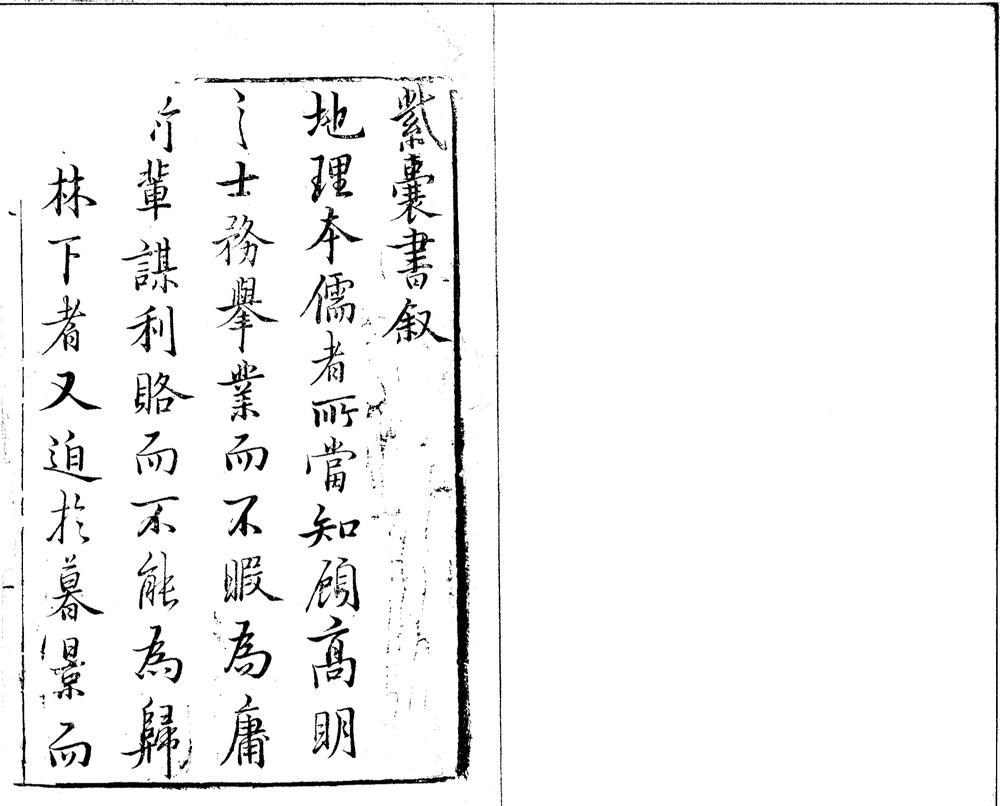 紫囊書叙
地理本儒者所當知顧高明
之士務舉業而不暇為庸
行輩謀利賂而不能為歸
林下者又迫於暮景而